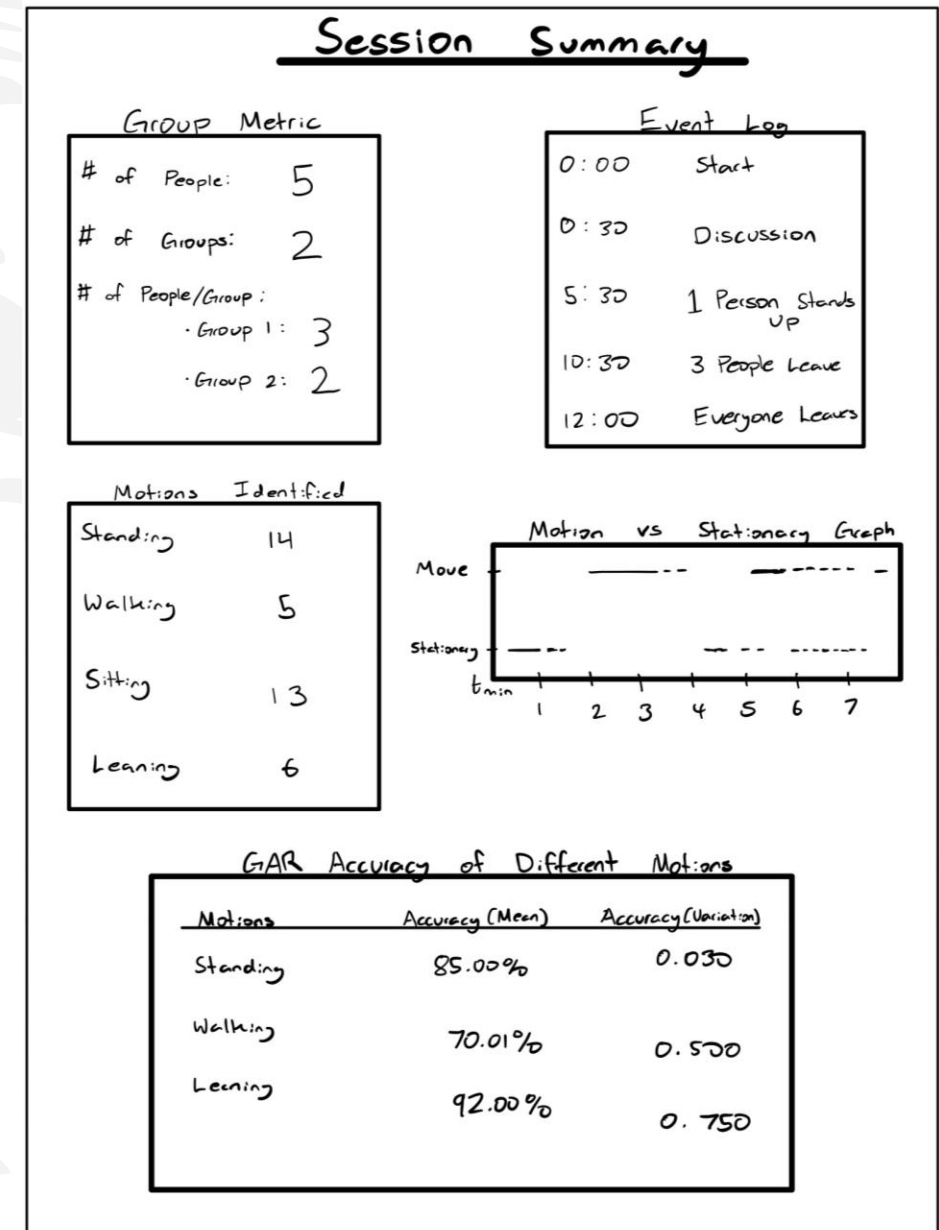 Session Summary
Group Metric
# of People: 5
# of Groups: 2
# of People/Group:
· Group 1: 3
· Group 2: 2
Event Log
0:00 Start
0:30 Discussion
5:30 1 Person Stands
UP
10:30 3 People Leave
12:00 Everyone Leaves
Motions Identified
Standing 14
Walking 5
Sitting 13
Leaning 6
Motion vs Stationary Graph
Move
Stationary
t min
1 2 3 4 5 6 7
GAR Accuracy of Different Motions
Motions Accuracy (Mean) Accuracy (Variation)
Standing 85.00% 0.030
Walking 70.01% 0.500
Leaning 92.00% 0.750